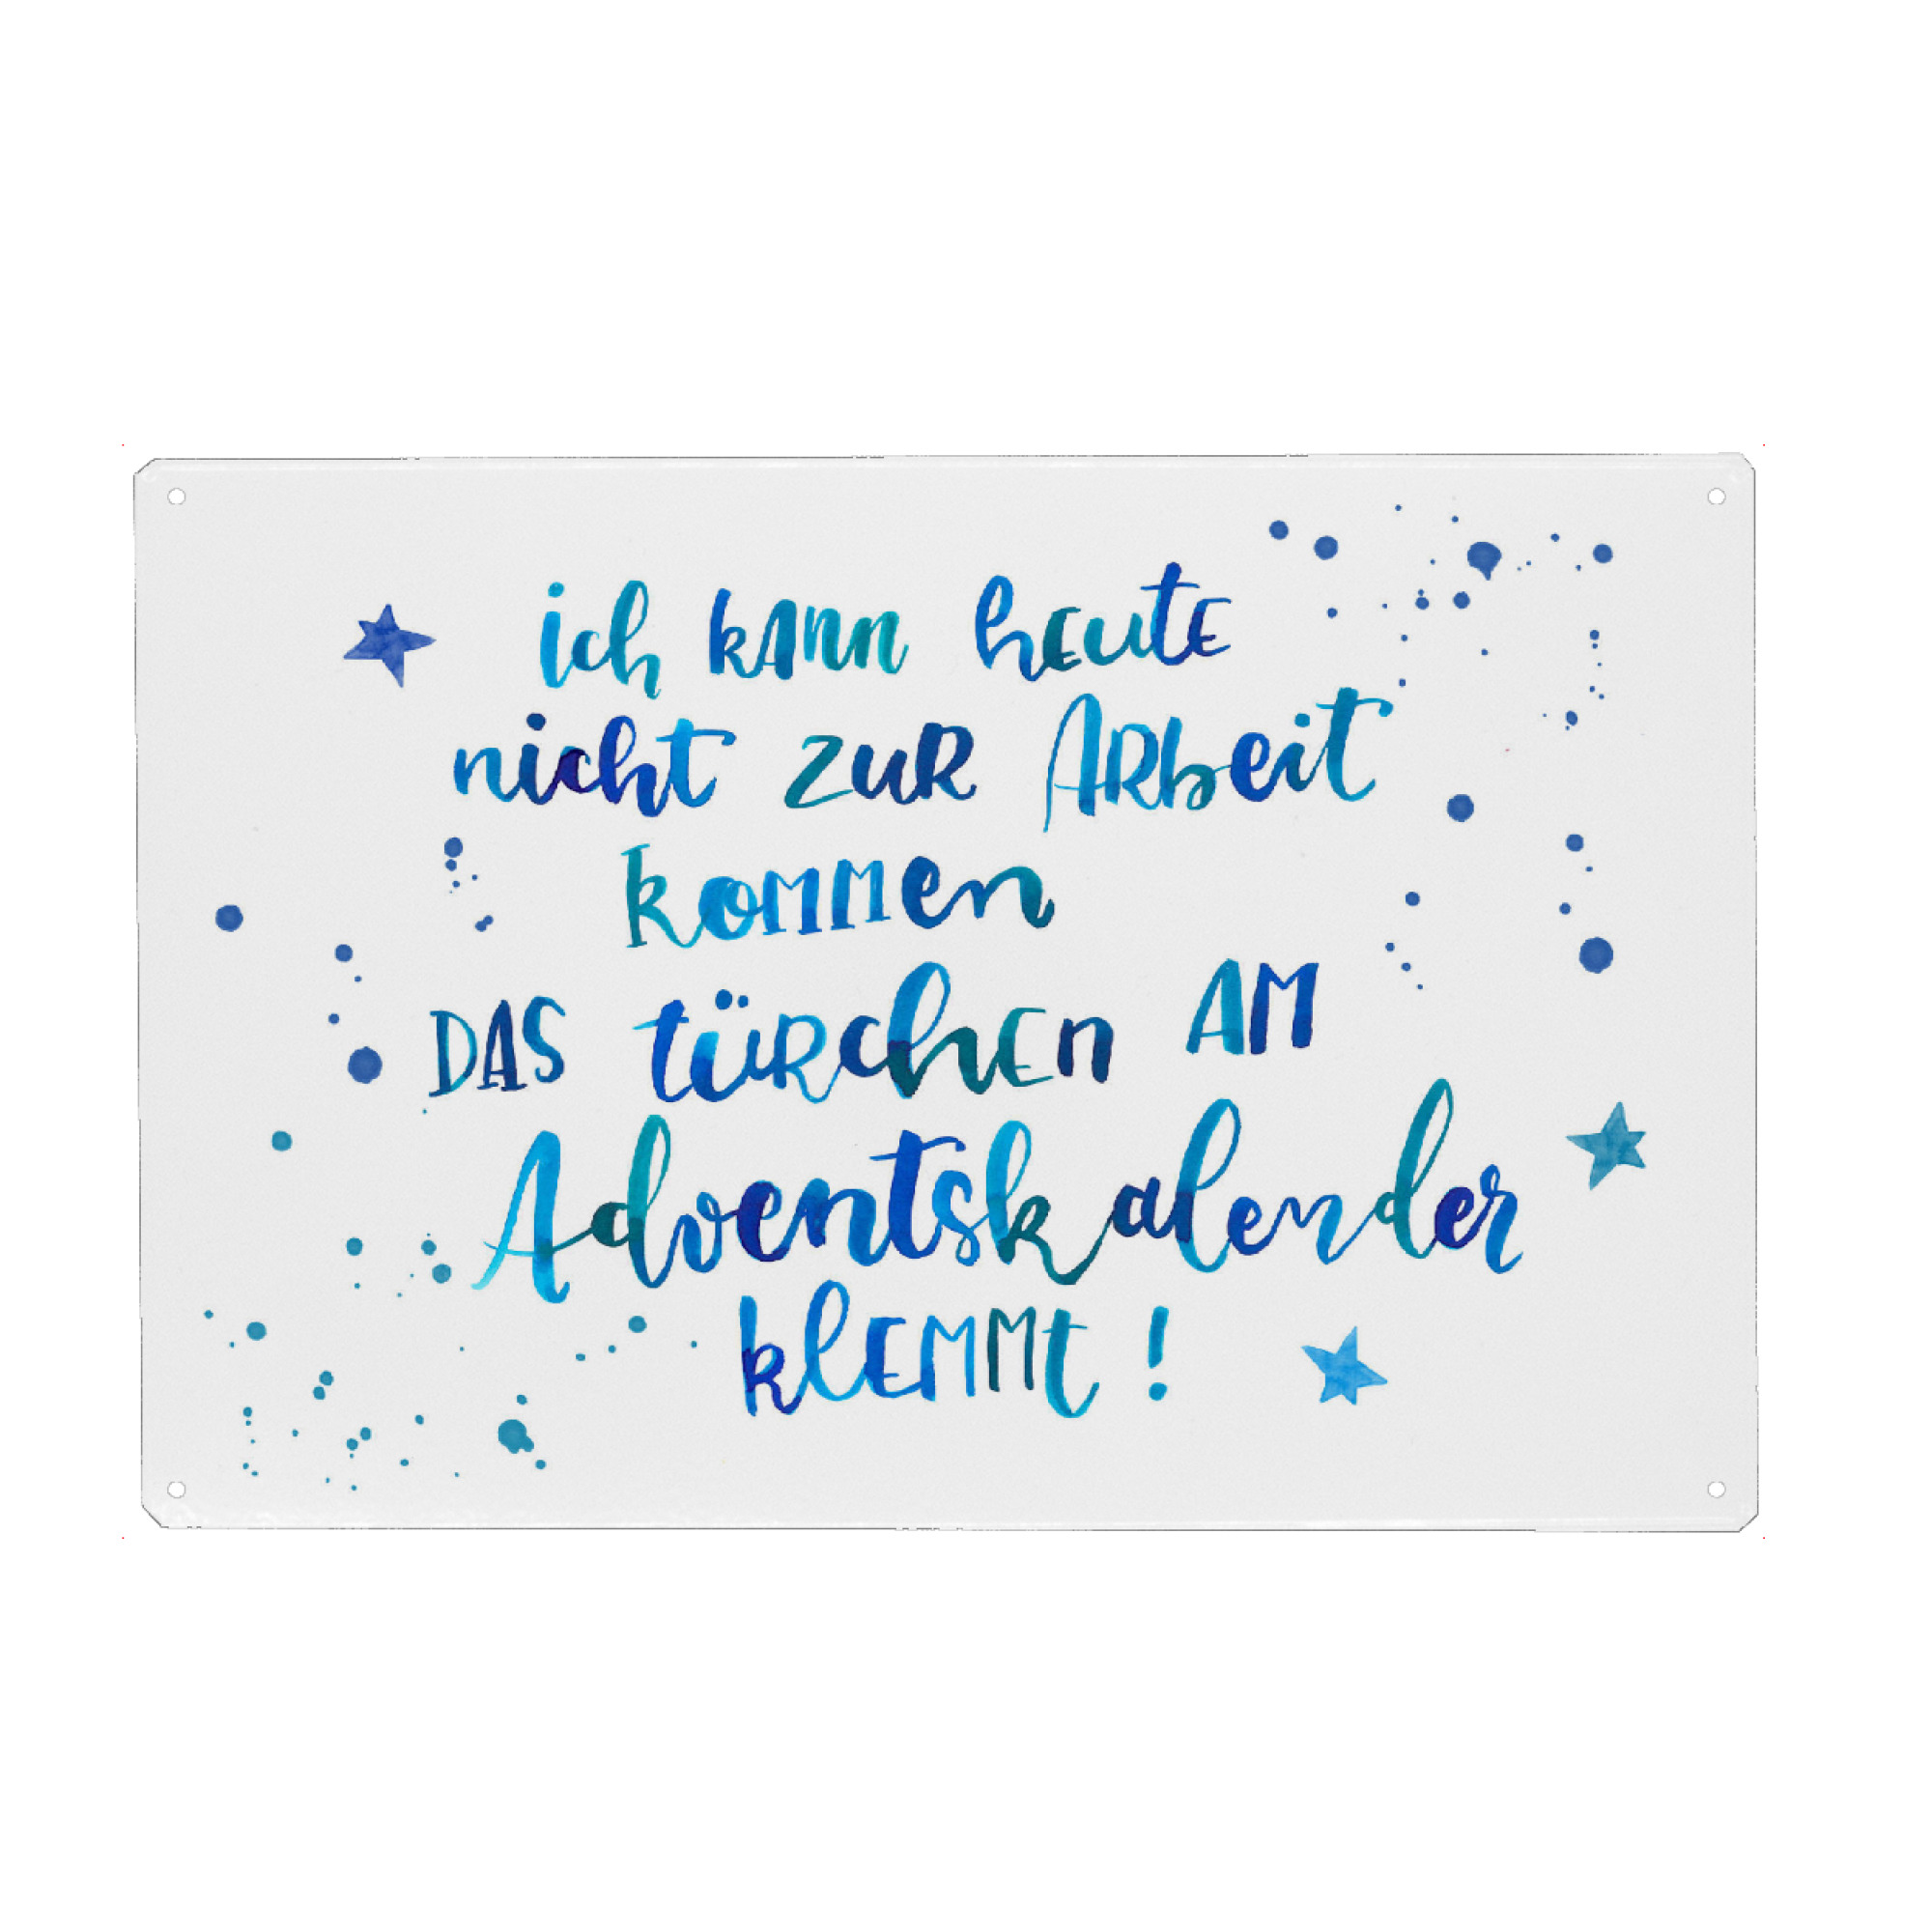 ich kann heute
nicht zur Arbeit
kommen
DAS türchen AM
Adventskalender
klemmt!